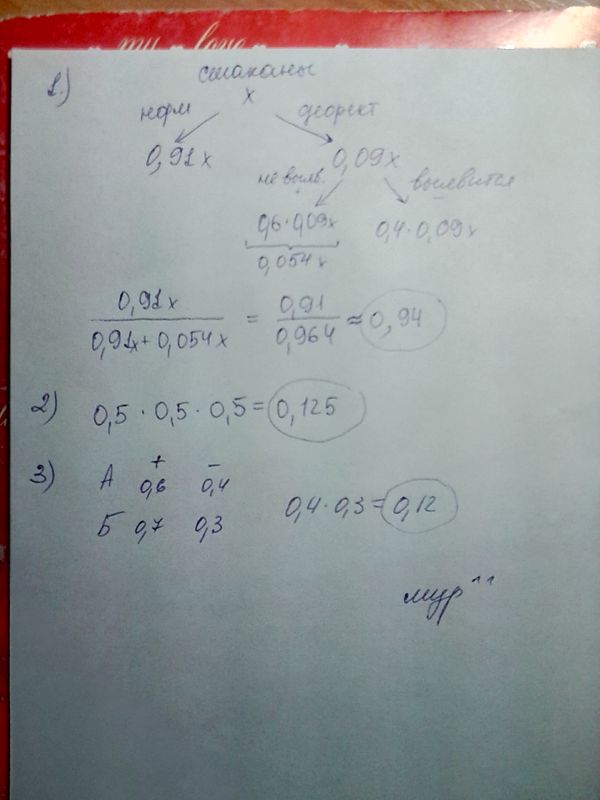 my love
1.) стаканы
x
норм дефект
0,91x 0,09x
не выяв. выявится
0,6·0,09x 0,4·0,09x
0,054x
0,91x / 0,91x+0,054x = 0,91 / 0,964 ≈ 0,94
2) 0,5 · 0,5 · 0,5 = 0,125
3) + −
А 0,6 0,4 0,4·0,3=0,12
Б 0,7 0,3
мур^^